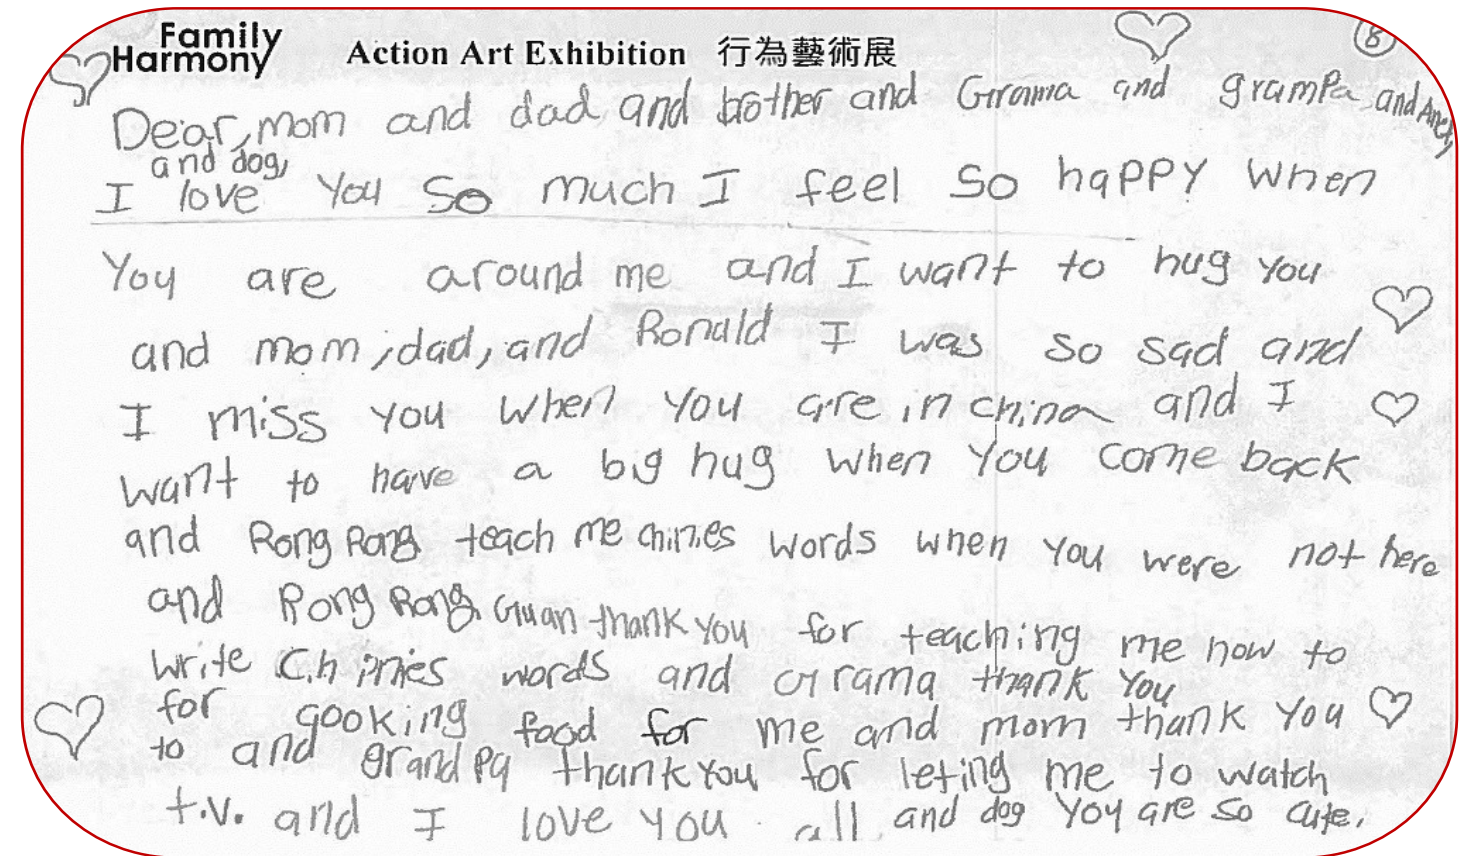 Family
Harmony
Action Art Exhibition 行為藝術展
8
Dear, mom and dad, and brother and Grama and grampa and
and dog,
I love you so much I feel so happy when
you are around me and I want to hug you
and mom, dad, and Ronald I was so sad and
I miss you when you are in china and I
want to have a big hug when you come back
and Rong Rong teach me chinies words when you were not here
and Rong Rong Guan thank you for teaching me how to
write Chinies words and Grama thank you
for gooking food for me and mom thank you
to and grandpa thank you for leting me to watch
t.v. and I love you all and dog you are so cute.